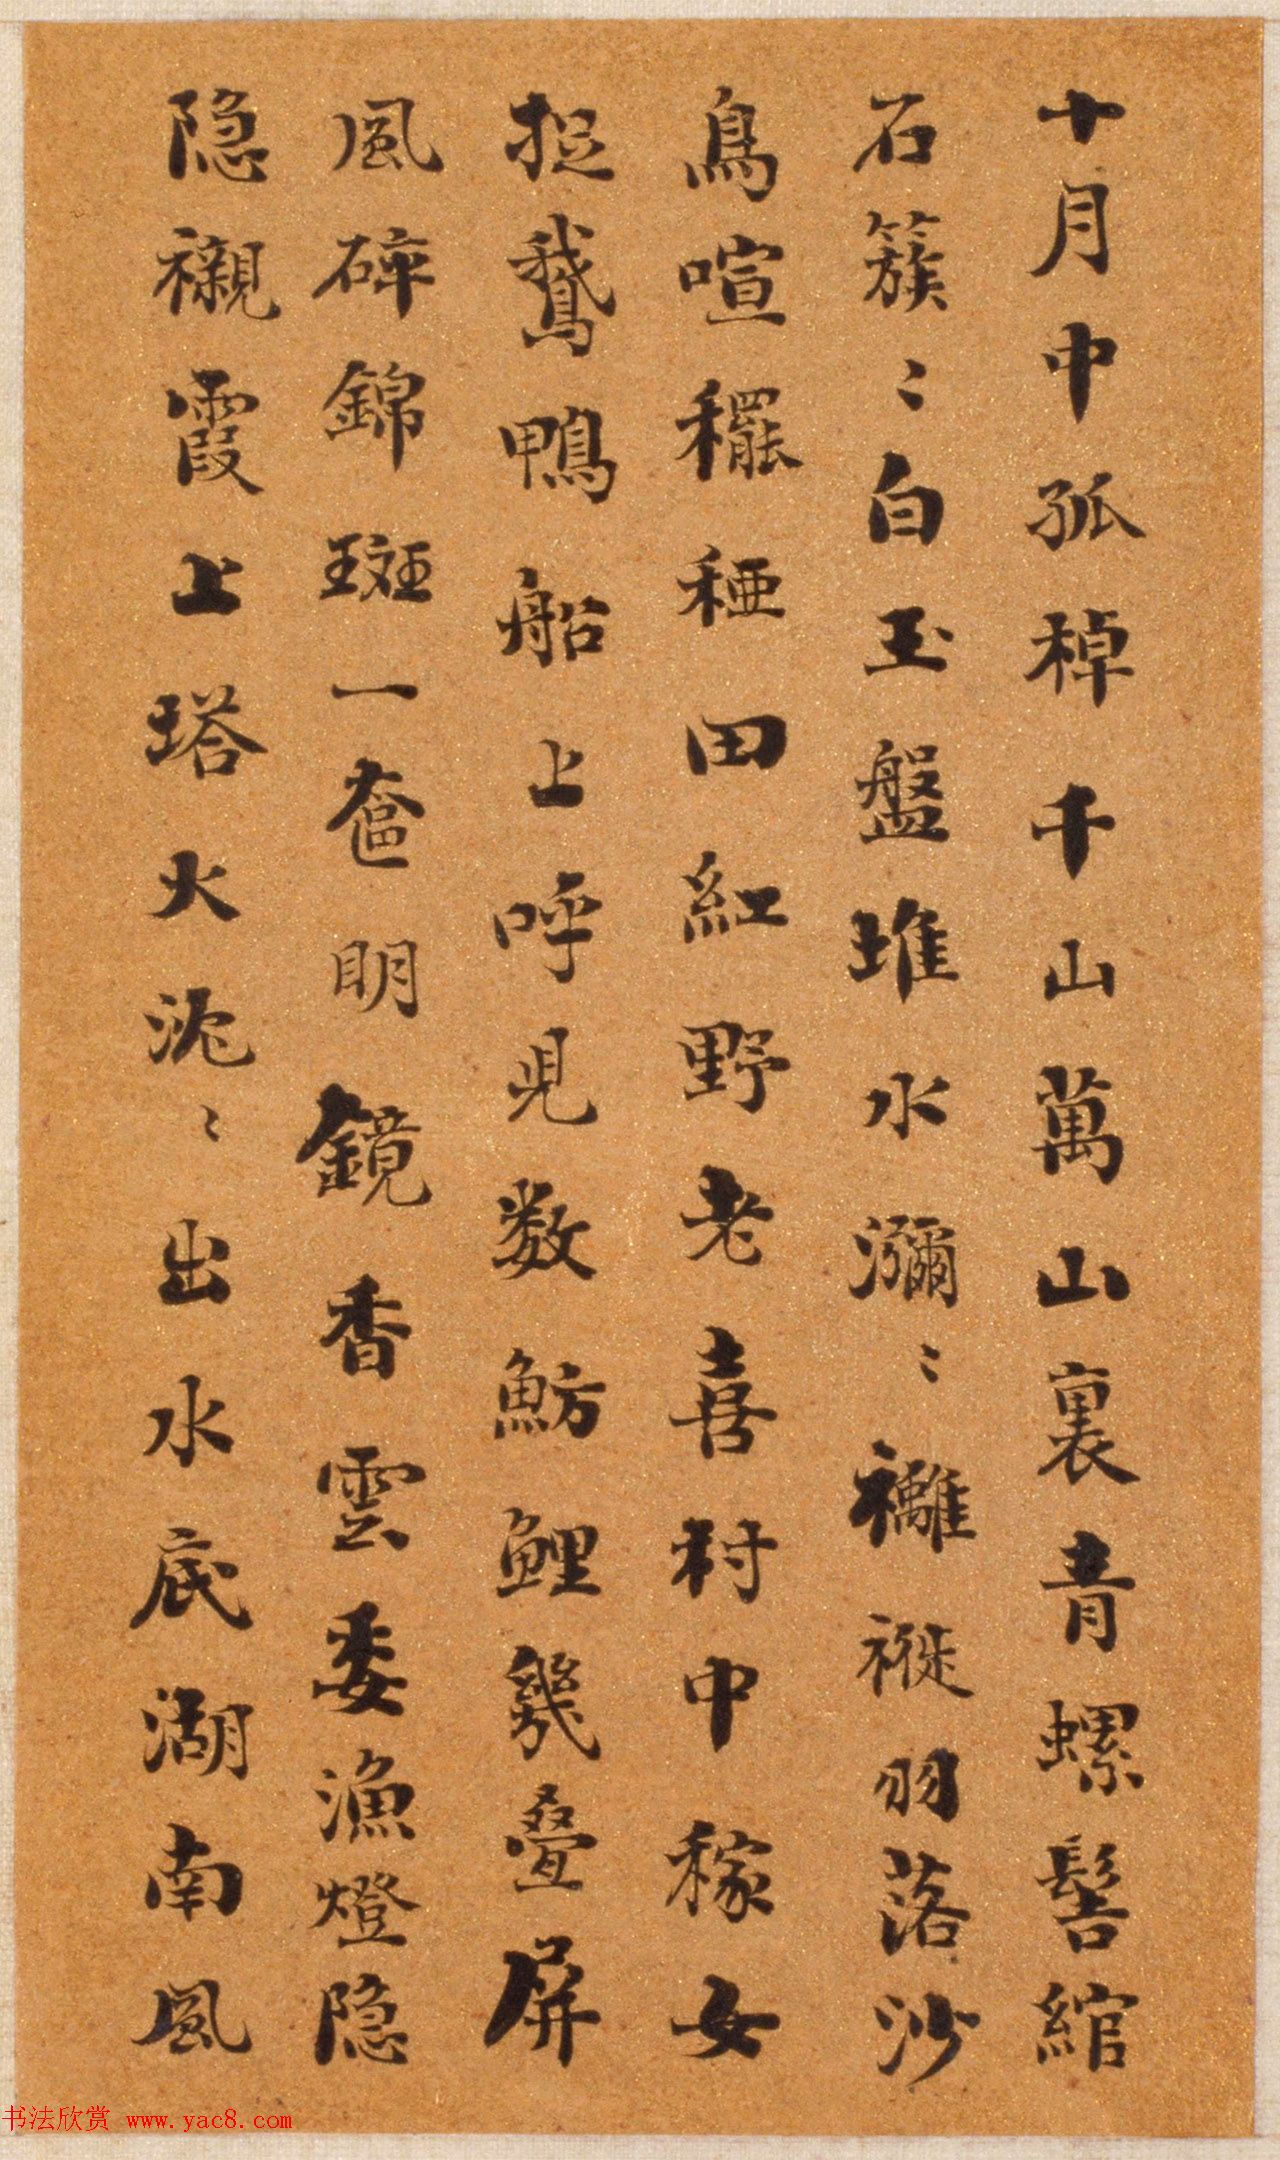 十月中孤棹千山萬山裏青螺髻綰
石簇〻白玉盤堆水瀰〻襹褷羽落沙
鳥喧䆉稏田紅野老喜村中稼女
捉鵝鴨船上呼児数魴鯉幾疊屏
風碎錦斑一奩明鏡香雲委漁燈隐
隐襯霞上塔火沈〻出水底湖南風
书法欣赏 www.yac8.com